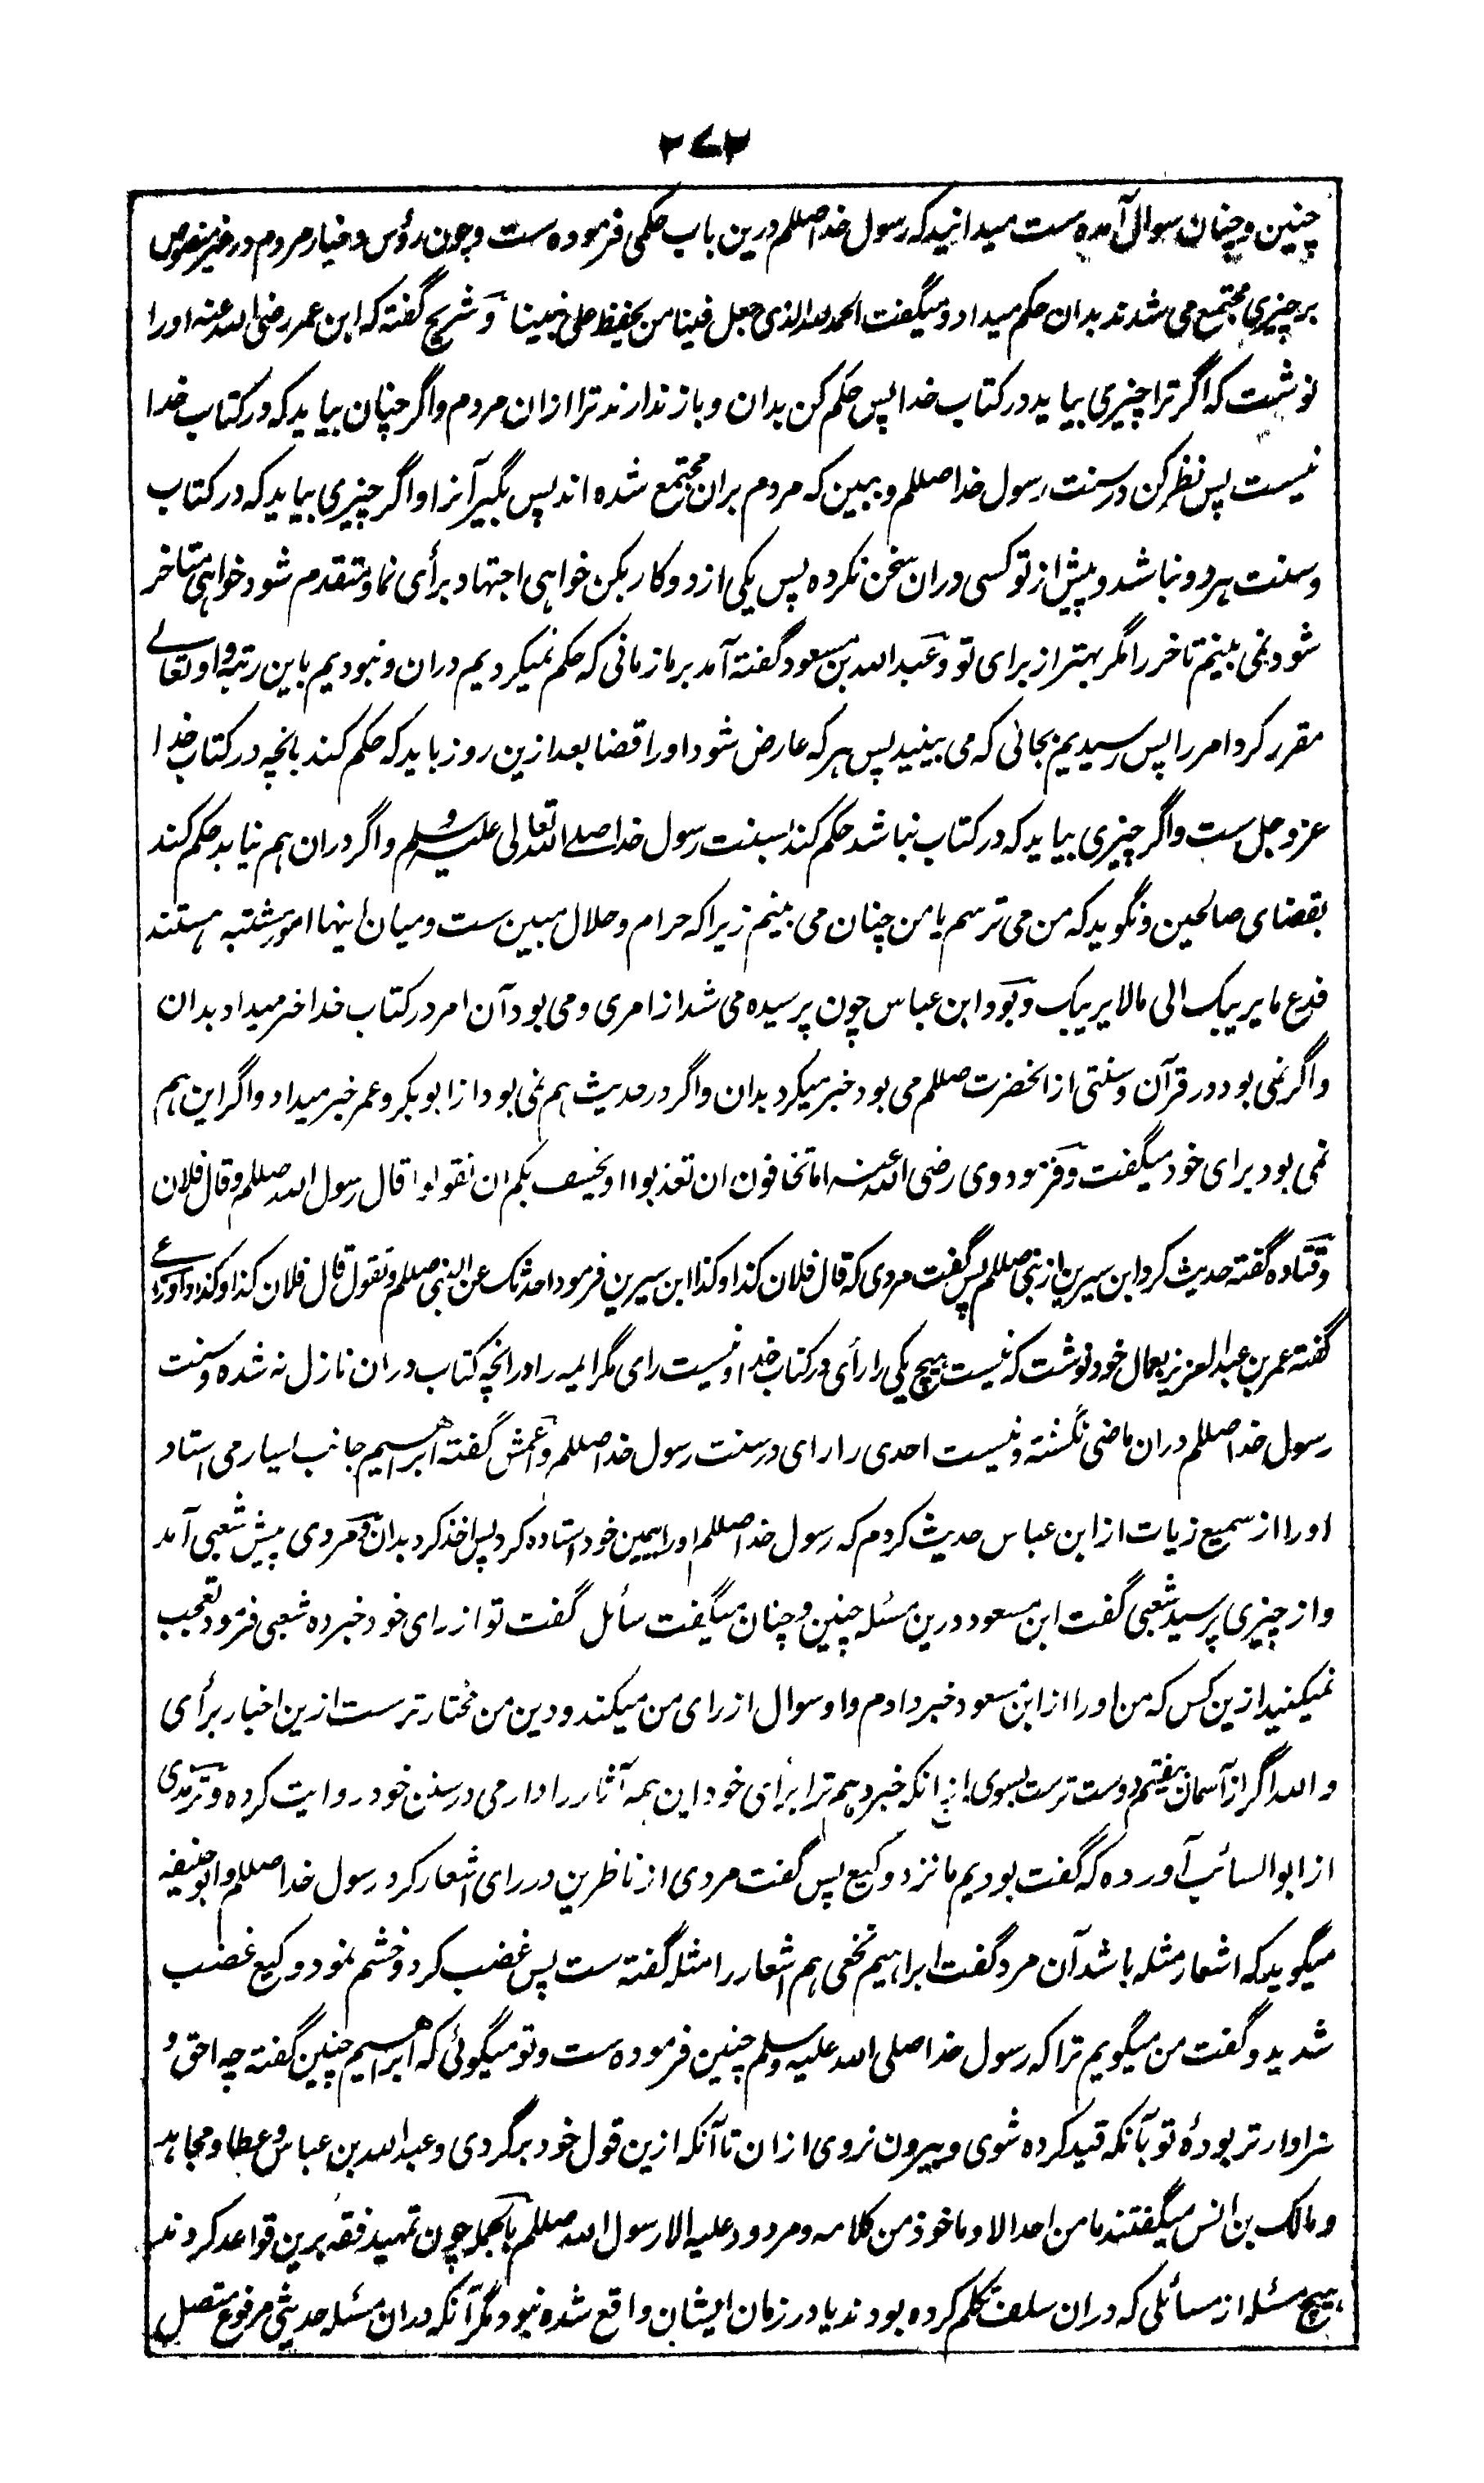 ۲۷۲
چنین و چنان سوال آمده ست میدانید که رسول خدا صللم درین باب حکمی فرموده ست و چون رؤس و خیار مردم در غیر منصوص
بر چیزی مجتمع می شدند بدان حکم میداد و میگفت الحمد لله الذی جعل فینا من یحفظ علی نبینا و شریح گفته که ابن عمر رضی الله عنه او را
نوشت که اگر ترا چیزی بیاید در کتاب خدا پس حکم کن بدان و باز ندارند ترا ازان مردم و اگر چنان بیاید که در کتاب خدا
نیست پس نظر کن در سنت رسول خدا صللم و ببین که مردم بران مجتمع شده اند پس بگیر آنرا و اگر چیزی بیاید که در کتاب
و سنت هر دو نباشد و پیش از تو کسی دران سخن نکرده پس یکی از دو کار بکن خواهی اجتهاد برأی نما و متقدم شو و خواهی متاخر
شو و نمی بینم تاخر را مگر بهتر از برای تو و عبد الله بن مسعود گفته آمد بر ما زمانی که حکم نمیکردیم دران و نبودیم باین رتبه و او تعالے
مقرر کرد امر را پس رسیدیم بجائی که می بینید پس هر که عارض شود او را قضا بعد ازین روز باید که حکم کند بانچه در کتاب خدا
عز و جل ست و اگر چیزی بیاید که در کتاب نباشد حکم کند بسنت رسول خدا صلے الله تعالی علیه و سلم و اگر دران هم نیاید حکم کند
بقضای صالحین و نگوید که من می ترسم یا من چنان می بینم زیرا که حرام و حلال مبین ست و میان اینها امور مشتبه هستند
فدع ما یریبک الی مالا یریبک و بود ابن عباس چون پرسیده می شد از امری و می بود آن امر در کتاب خدا خبر میداد بدان
و اگر نمی بود در قرآن و سنتی از انحضرت صللم می بود خبر میکرد بدان و اگر در حدیث هم نمی بود از ابو بکر و عمر خبر میداد و اگر این هم
نمی بود برای خود میگفت و فرمود وی رضی الله عنه اما تخافون ان تعذبوا او یخسف بکم ان تقولوا قال رسول الله صللم و قال فلان
و قتاده گفته حدیث کرد ابن سیرین از نبی صللم پس گفت مردی که قال فلان کذا و کذا ابن سیرین فرمود احدثک عن النبی صللم و تقول قال فلان کذا و کذا و اوزاعے
گفته عمر بن عبد العزیز بعمال خود نوشت که نیست هیچ یکی را رأی در کتاب خدا و نیست رای مگر ایمه را در انچه کتاب دران نازل نه شده و سنت
رسول خدا صللم دران ماضی نگشته و نیست احدی را رای در سنت رسول خدا صللم و اعمش گفته ابراهیم جانب یسار می استاد
او را از سمیع زیات از ابن عباس حدیث کردم که رسول خدا صللم او را بیمین خود استاده کرد پس اخذ کرد بدان و مردی پیش شعبی آمد
و از چیزی پرسید شعبی گفت ابن مسعود درین مسئله چنین و چنان میگفت سائل گفت تو از رای خود خبر ده شعبی فرمود تعجب
نمیکنید ازین کس که من او را از ابن مسعود خبر دادم و او سوال از رای من میکند و دین من مختار ترست ازین اخبار برأی
و الله اگر از آسمان بیفتم دوست ترست بسوی از انکه خبر دهم ترا برأی خود این همه آثار را دارمی در سنن خود روایت کرده و ترمذی
از ابو السائب آورده که گفت بودیم ما نزد وکیع پس گفت مردی از ناظرین در رای اشعار کرد رسول خدا صللم و ابو حنیفه
میگوید که اشعار مثله باشد آن مرد گفت ابراهیم نخعی هم اشعار را مثله گفته ست پس غضب کرد و خشم نمود وکیع غضب
شدید و گفت من میگویم ترا که رسول خدا صلی الله علیه و سلم چنین فرموده ست و تو میگوئی که ابراهیم چنین گفته چه احق و
سزاوار تر بودهٔ تو بآنکه قید کرده شوی و بیرون نروی ازان تا آنکه ازین قول خود برگردی و عبد الله بن عباس و عطا و مجاهد
و مالک بن انس میگفتند ما من احد الا و ماخوذ من کلامه و مردود علیه الا رسول الله صللم بالجمله چون تمهید فقه برین قواعد کردند
هیچ مسئله از مسائلی که دران سلف تکلم کرده بودند یا در زمان ایشان واقع شده نبود مگر آنکه دران مسئله حدیثی مرفوع متصل